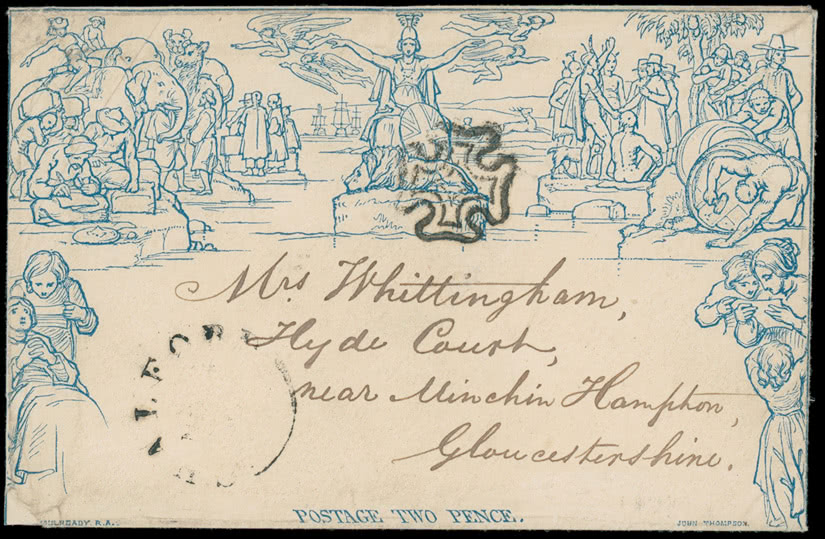 Mrs Whittingham,
Hyde Court,
near Minchin Hampton,
Gloucestershire.
POSTAGE TWO PENCE.
MULREADY. R.A.
JOHN THOMPSON.